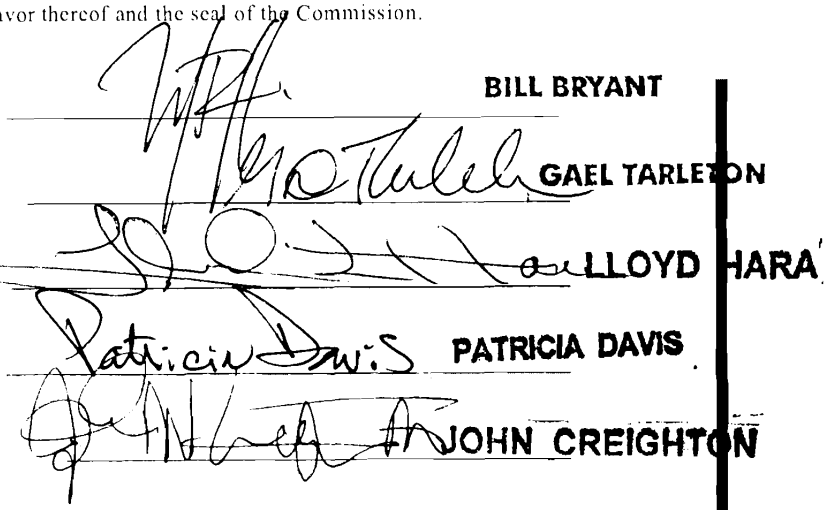 avor thereof and the seal of the Commission.
BILL BRYANT
GAEL TARLETON
LLOYD HARA
Patricia Davis PATRICIA DAVIS
JOHN CREIGHTON